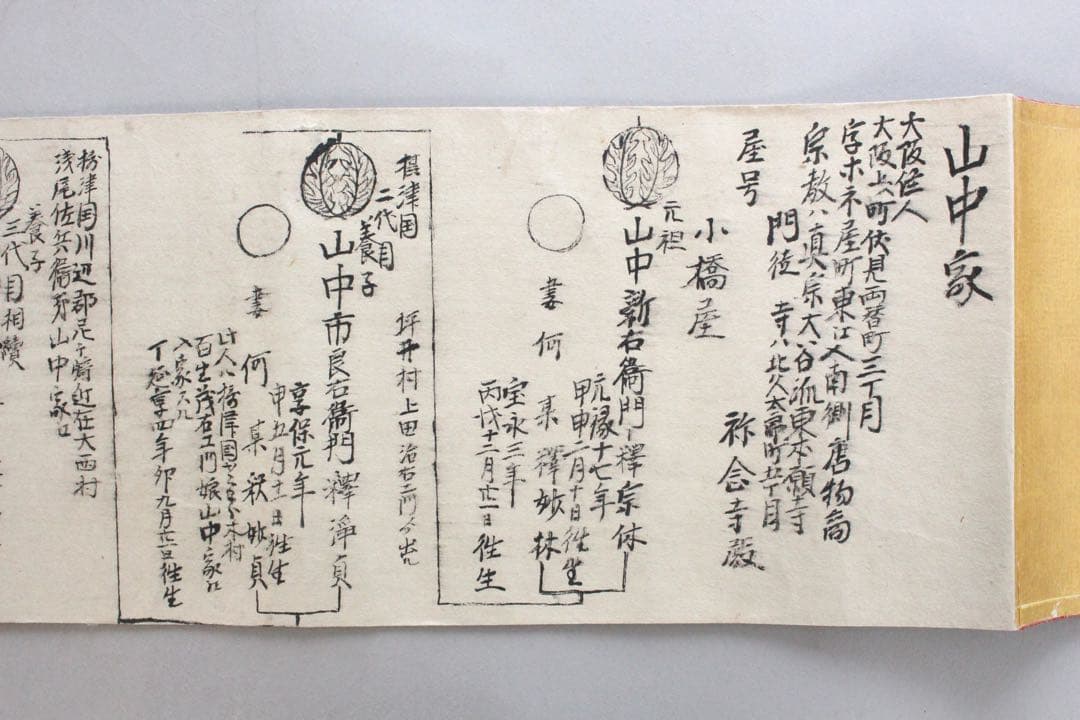 山中家
大阪住人
大阪上町伏見両替町三丁月
字ホネ屋町東江入南側唐物商
宗教ハ真宗大谷派東本願寺
門徒 寺ハ北久太郎町五丁月
祢念寺殿
屋号
小橋屋
元祖
山中新右衛門 釋宗休
元禄十七年
甲申二月十日往生
妻 何某 釋妙林
宝永三年
丙戌十二月廿一日往生
摂津国
坪井村上田治右エ門ゟ出ル
二代目
養子
山中市良右衛門 釋淨貞
享保元年
申五月十二日往生
妻 何某 釈妙貞
此人ハ摂津国
木村
百生茂右エ門娘山中家ニ
入家スル
享四年卯九月廿一日往生
摂津国川辺郡尼ケ崎近在大西村
浅尾佐兵衛弟山中家ニ
養子
三代目相續